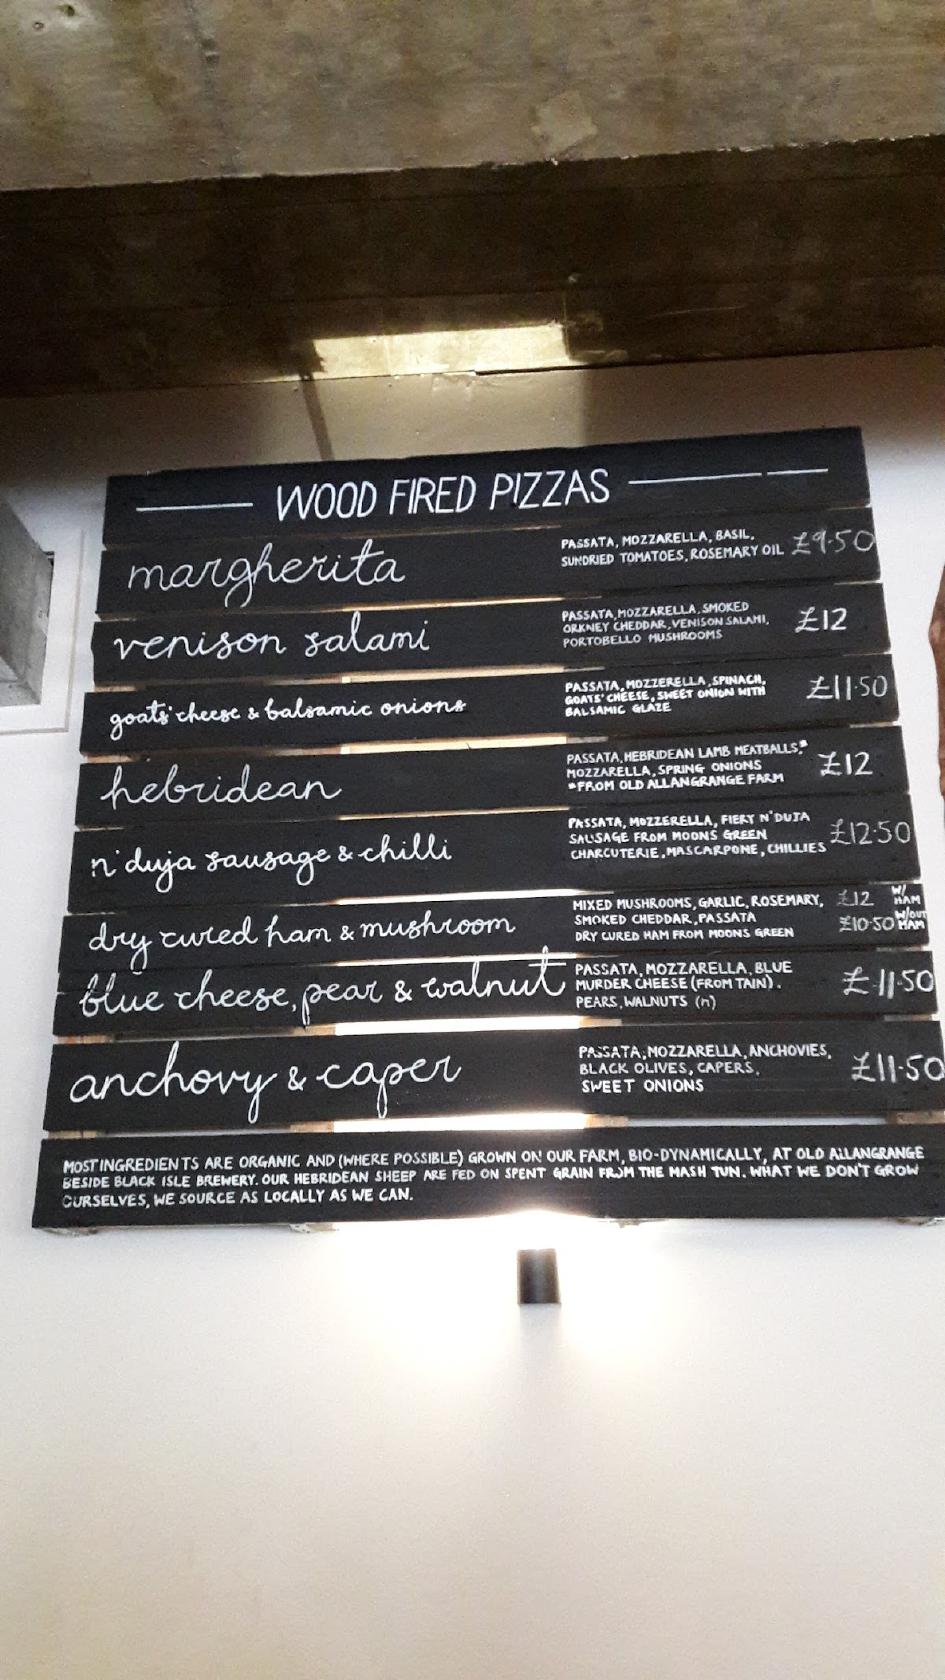 WOOD FIRED PIZZAS
margherita
PASSATA, MOZZARELLA, BASIL,
SUNDRIED TOMATOES, ROSEMARY OIL
£9.50
venison salami
PASSATA, MOZZARELLA, SMOKED
ORKNEY CHEDDAR, VENISON SALAMI,
PORTOBELLO MUSHROOMS
£12
goats' cheese & balsamic onions
PASSATA, MOZZERELLA, SPINACH,
GOATS' CHEESE, SWEET ONION WITH
BALSAMIC GLAZE
£11.50
hebridean
PASSATA, HEBRIDEAN LAMB MEATBALLS,*
MOZZARELLA, SPRING ONIONS
*FROM OLD ALLANGRANGE FARM
£12
n'duja sausage & chilli
PASSATA, MOZZERELLA, FIERY N'DUJA
SAUSAGE FROM MOONS GREEN
CHARCUTERIE, MASCARPONE, CHILLIES
£12.50
dry cured ham & mushroom
MIXED MUSHROOMS, GARLIC, ROSEMARY,
SMOKED CHEDDAR, PASSATA
DRY CURED HAM FROM MOONS GREEN
£12 W/ HAM
£10.50 W/OUT HAM
blue cheese, pear & walnut
PASSATA, MOZZARELLA, BLUE
MURDER CHEESE (FROM TAIN).
PEARS, WALNUTS (n)
£11.50
anchovy & caper
PASSATA, MOZZARELLA, ANCHOVIES,
BLACK OLIVES, CAPERS,
SWEET ONIONS
£11.50
MOST INGREDIENTS ARE ORGANIC AND (WHERE POSSIBLE) GROWN ON OUR FARM, BIO-DYNAMICALLY, AT OLD ALLANGRANGE
BESIDE BLACK ISLE BREWERY. OUR HEBRIDEAN SHEEP ARE FED ON SPENT GRAIN FROM THE MASH TUN. WHAT WE DON'T GROW
OURSELVES, WE SOURCE AS LOCALLY AS WE CAN.